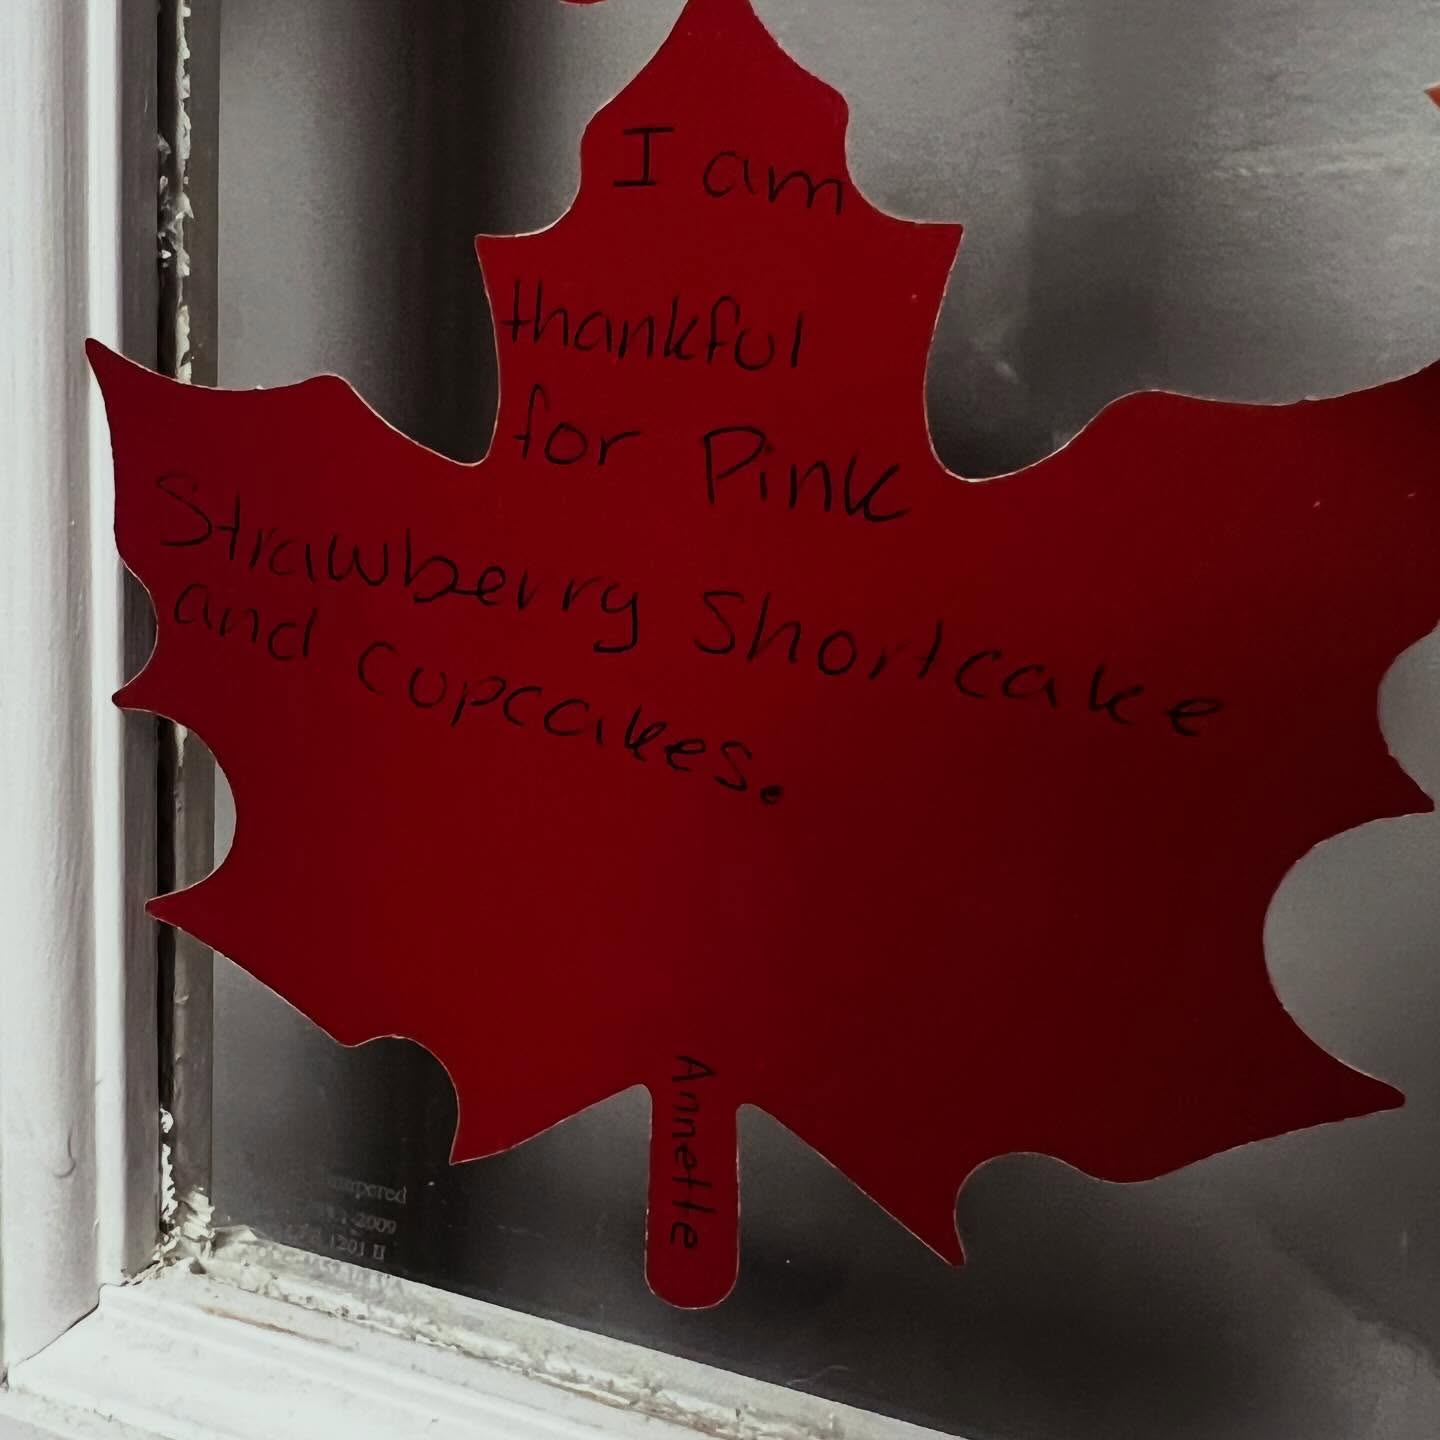 I am
thankful
for Pink
Strawberry Shortcake
and cupcakes.
Annette
2009
1201 II